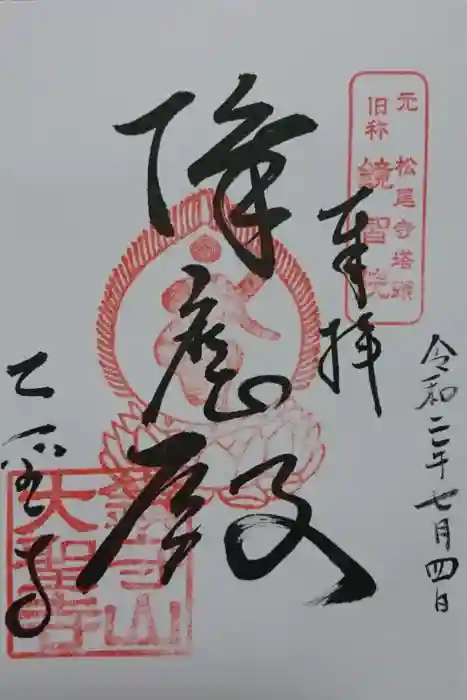 元 松尾寺塔頭
旧称 鏡智院
奉拝
令和二年七月四日
降魔殿
大聖寺
大聖寺